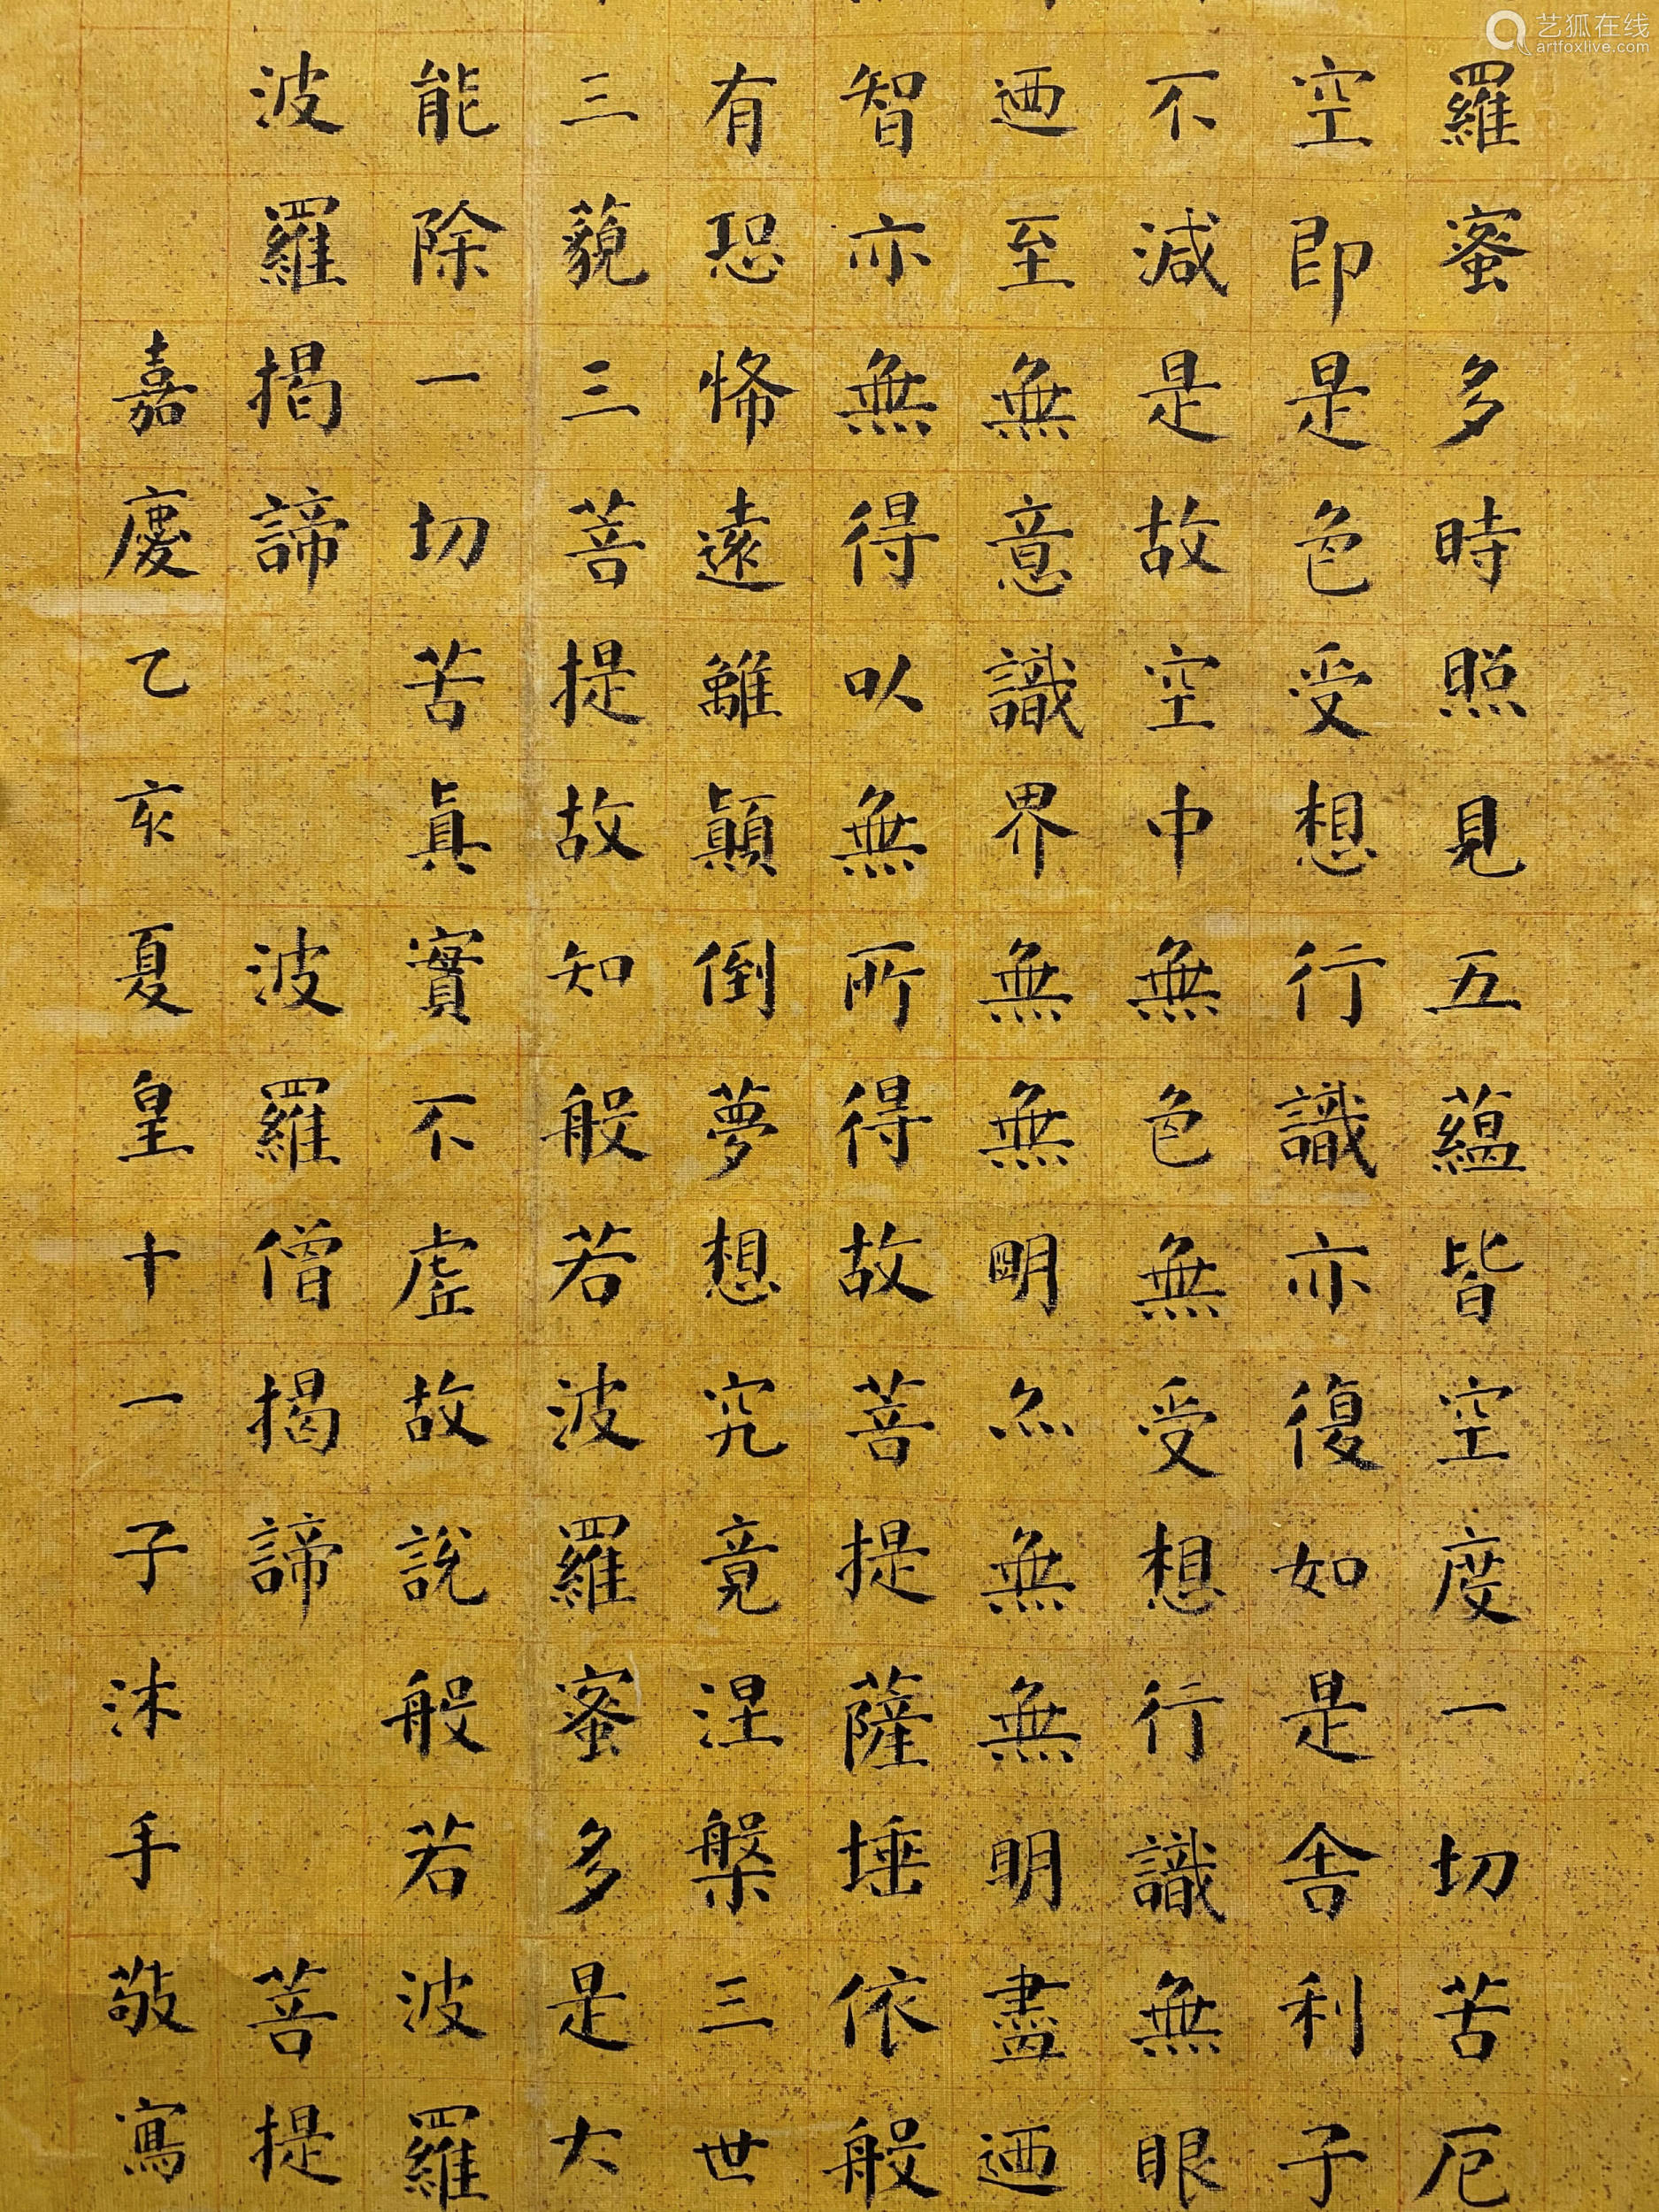 羅蜜多時照見五蘊皆空度一切苦厄
空即是色受想行識亦復如是舍利子
不減是故空中無色無受想行識無眼
迺至無意識界無無明亦無無明盡迺
智亦無得以無所得故菩提薩埵依般
有恐怖遠離顛倒夢想究竟涅槃三世
三藐三菩提故知般若波羅蜜多是大
能除一切苦真實不虛故說般若波羅
波羅揭諦 波羅僧揭諦 菩提
嘉慶乙亥夏皇十一子沐手敬寫
艺狐在线
artfoxlive.com